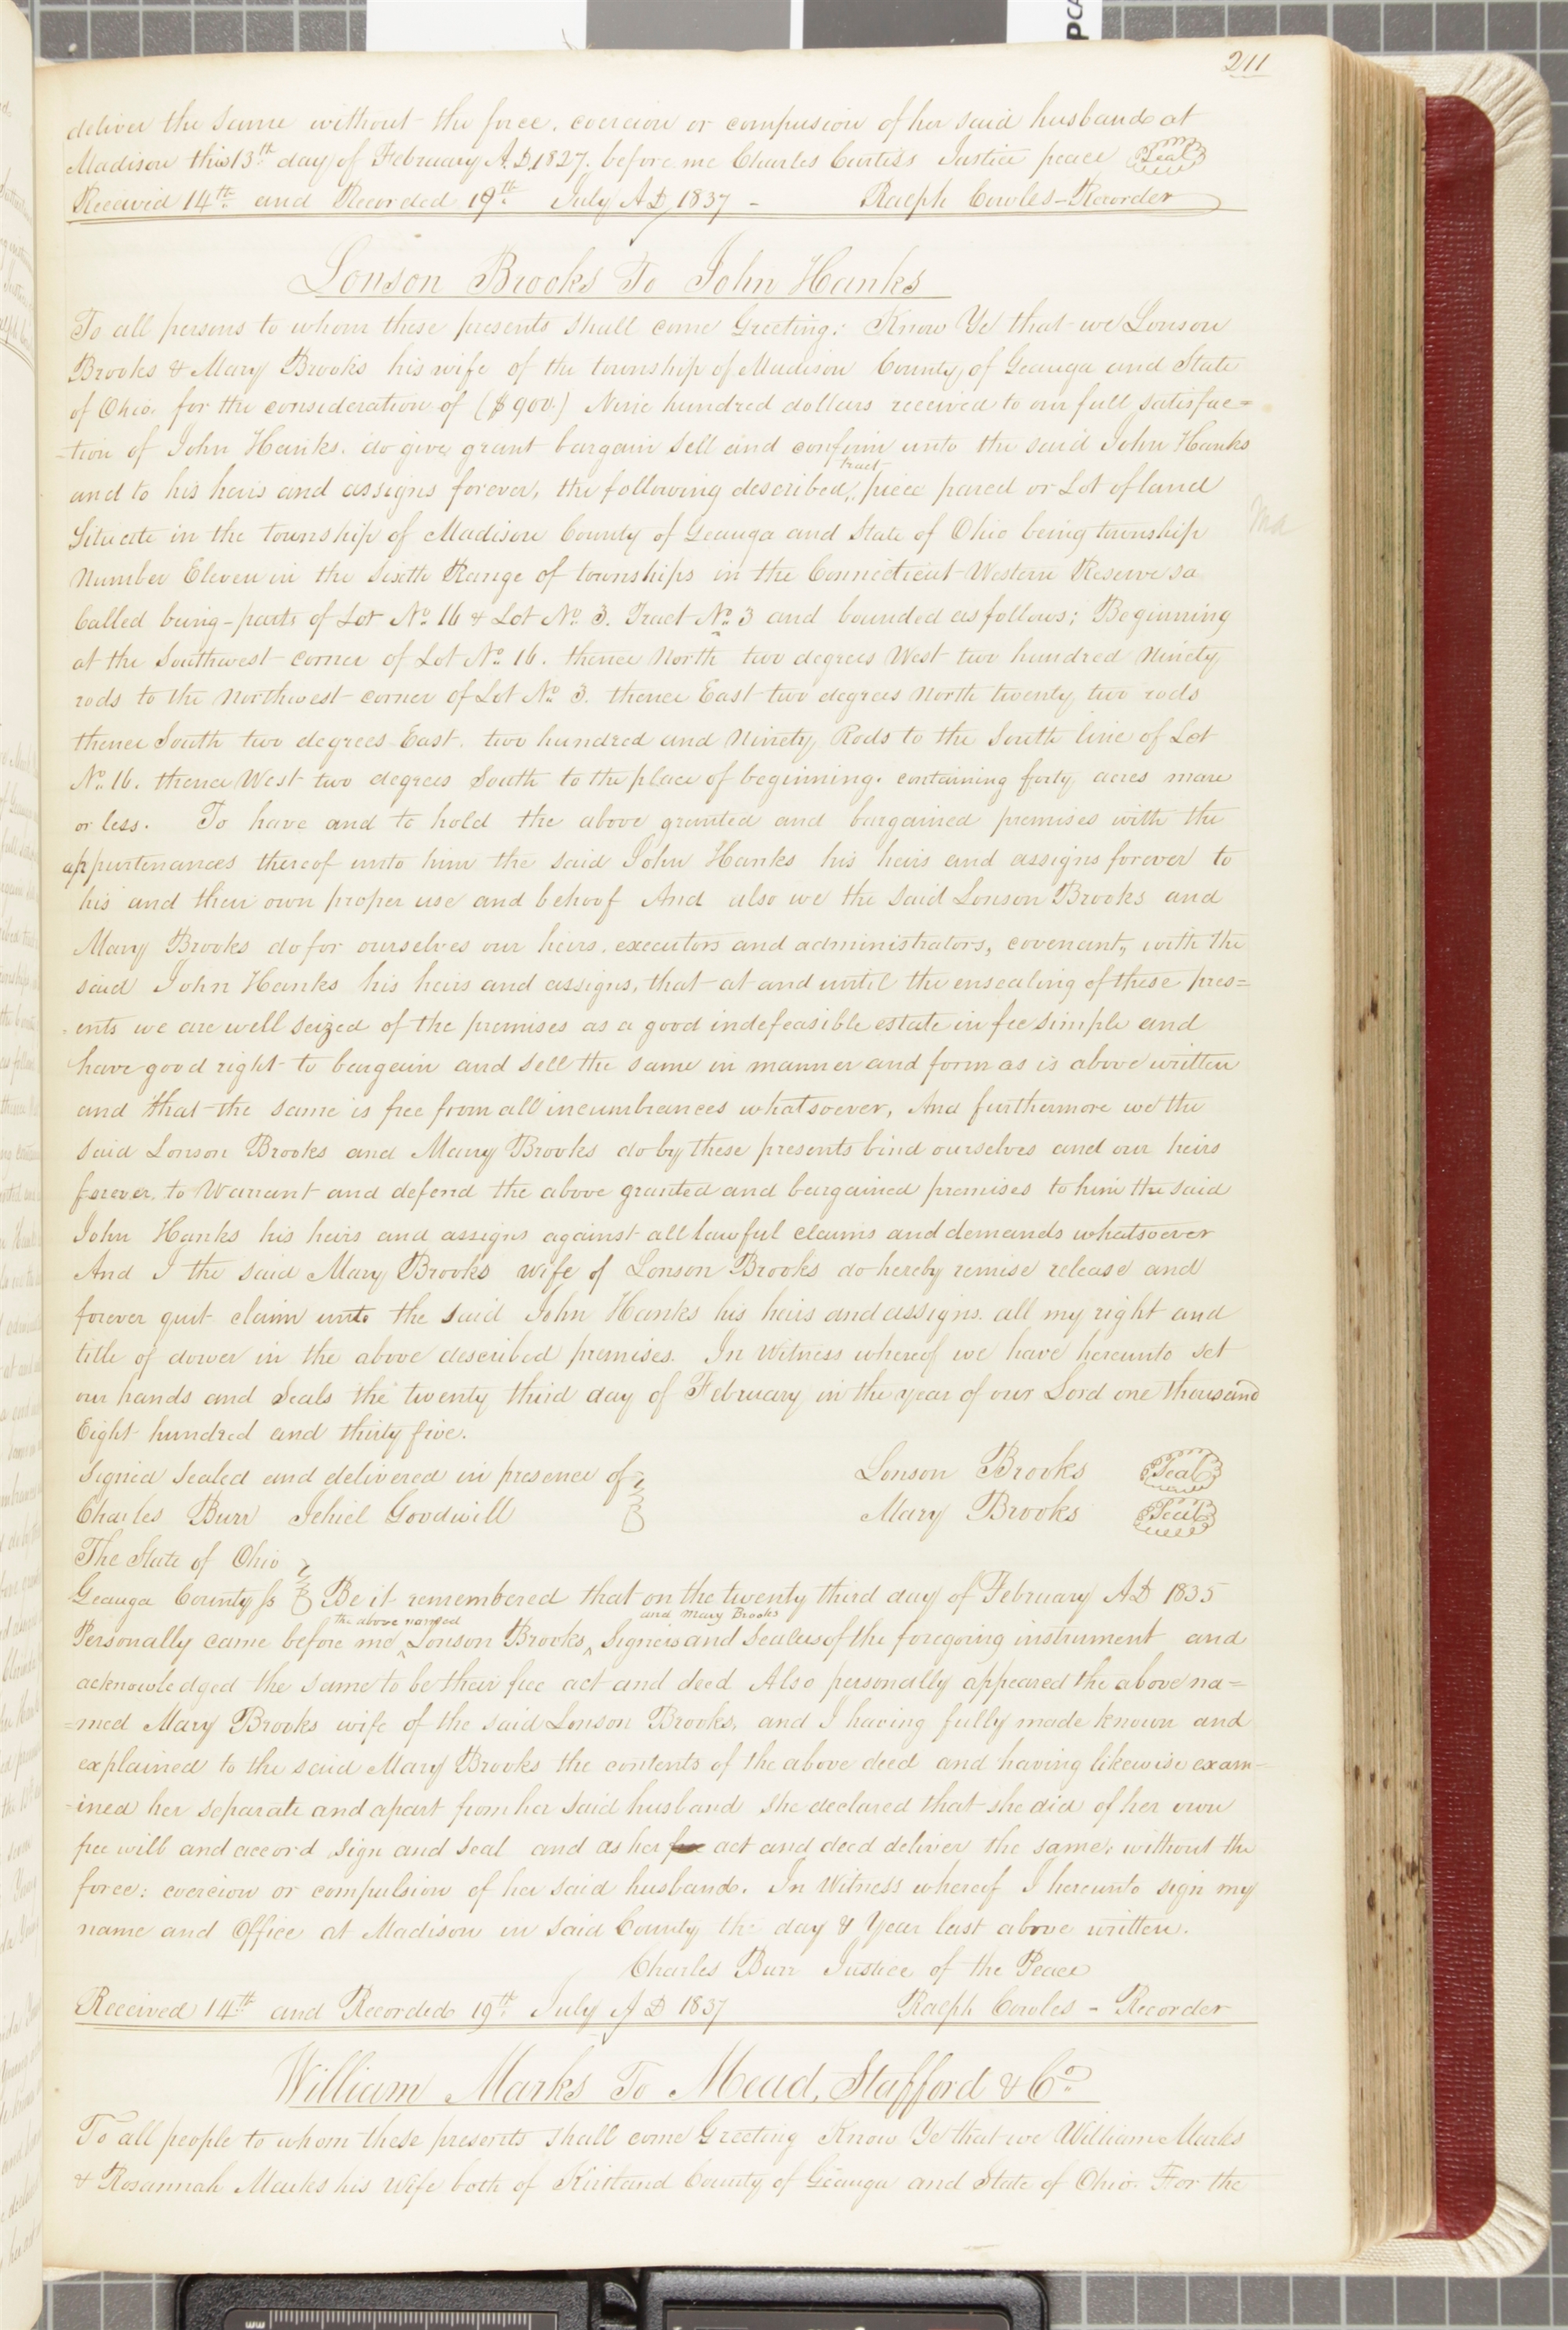 211
deliver the same without the force, coercion or compulsion of her said husband at
Madison this 13th day of February A.D. 1827. before me Charles Curtiss Justice peace Seal
Received 14th and Recorded 19th July A D 1837 - Ralph Cowles - Recorder
Lonson Brooks To John Hanks
To all persons to whom these presents shall come Greeting: Know Ye that we Lonson
Brooks & Mary Brooks his wife of the township of Madison County of Geauga and State
of Ohio. for the consideration of ($900.) Nine hundred dollars received to our full satisfac=
=tion of John Hanks. do give grant bargain sell and confirm unto the said John Hanks
and to his heirs and assigns forever, the following described, tract piece parcel or Lot of land
Situate in the township of Madison County of Geauga and State of Ohio being township
Number Eleven in the Sixth Range of townships in the Connecticut Western Reserve so
Called being - parts of Lot No. 16 & Lot No. 3. Tract No. 3 and bounded as follows; Beginning
at the Southwest corner of Lot No. 16. thence North two degrees West two hundred Ninety
rods to the Northwest corner of Lot No. 3. thence East two degrees North twenty two rods
thence South two degrees East. two hundred and Ninety Rods to the South line of Lot
No. 16. thence West two degrees South to the place of beginning. containing forty acres more
or less. To have and to hold the above granted and bargained premises with the
appurtenances thereof unto him the said John Hanks his heirs and assigns forever to
his and their own proper use and behoof And also we the said Lonson Brooks and
Mary Brooks do for ourselves our heirs, executors and administrators, covenant, with the
said John Hanks his heirs and assigns, that at and until the ensealing of these pres=
ents we are well seized of the premises as a good indefeasible estate in fee simple and
have good right to bargain and sell the same in manner and form as is above written
and that the same is free from all incumbrances whatsoever, And furthermore we the
said Lonson Brooks and Mary Brooks do by these presents bind ourselves and our heirs
forever. to Warrant and defend the above granted and bargained premises to him the said
John Hanks his heirs and assigns against all lawful claims and demands whatsoever
And I the said Mary Brooks wife of Lonson Brooks do hereby remise release and
forever quit claim unto the said John Hanks his heirs and assigns. all my right and
title of dower in the above described premises. In Witness whereof we have hereunto set
our hands and Seals the twenty third day of February in the year of our Lord one thousand
Eight hundred and thirty five.
Signed Sealed and delivered in presence of Lonson Brooks Seal
Charles Burr Jehiel Goodwill Mary Brooks Seal
The State of Ohio
Geauga County ss Be it remembered that on the twenty third day of February AD 1835
Personally came before me the above named Lonson Brooks and Mary Brooks Signers and Sealers of the foregoing instrument and
acknowledged the same to be their free act and deed Also personally appeared the above na=
=med Mary Brooks wife of the said Lonson Brooks, and I having fully made known and
explained to the said Mary Brooks the contents of the above deed and having likewise exam-
=ined her separate and apart from her said husband she declared that she did of her own
free will and accord sign and seal and as her act and deed deliver the same, without the
force: coercion or compulsion of her said husband. In Witness whereof I hereunto sign my
name and Office at Madison in said County the day & Year last above written.
Charles Burr Justice of the Peace
Received 14th and Recorded 19th July A D 1837 Ralph Cowles - Recorder
William Marks To Mead, Stafford & Co.
To all people to whom these presents shall come Greeting Know Ye that we William Marks
& Rosannah Marks his Wife both of Kirtland County of Geauga and State of Ohio. For the